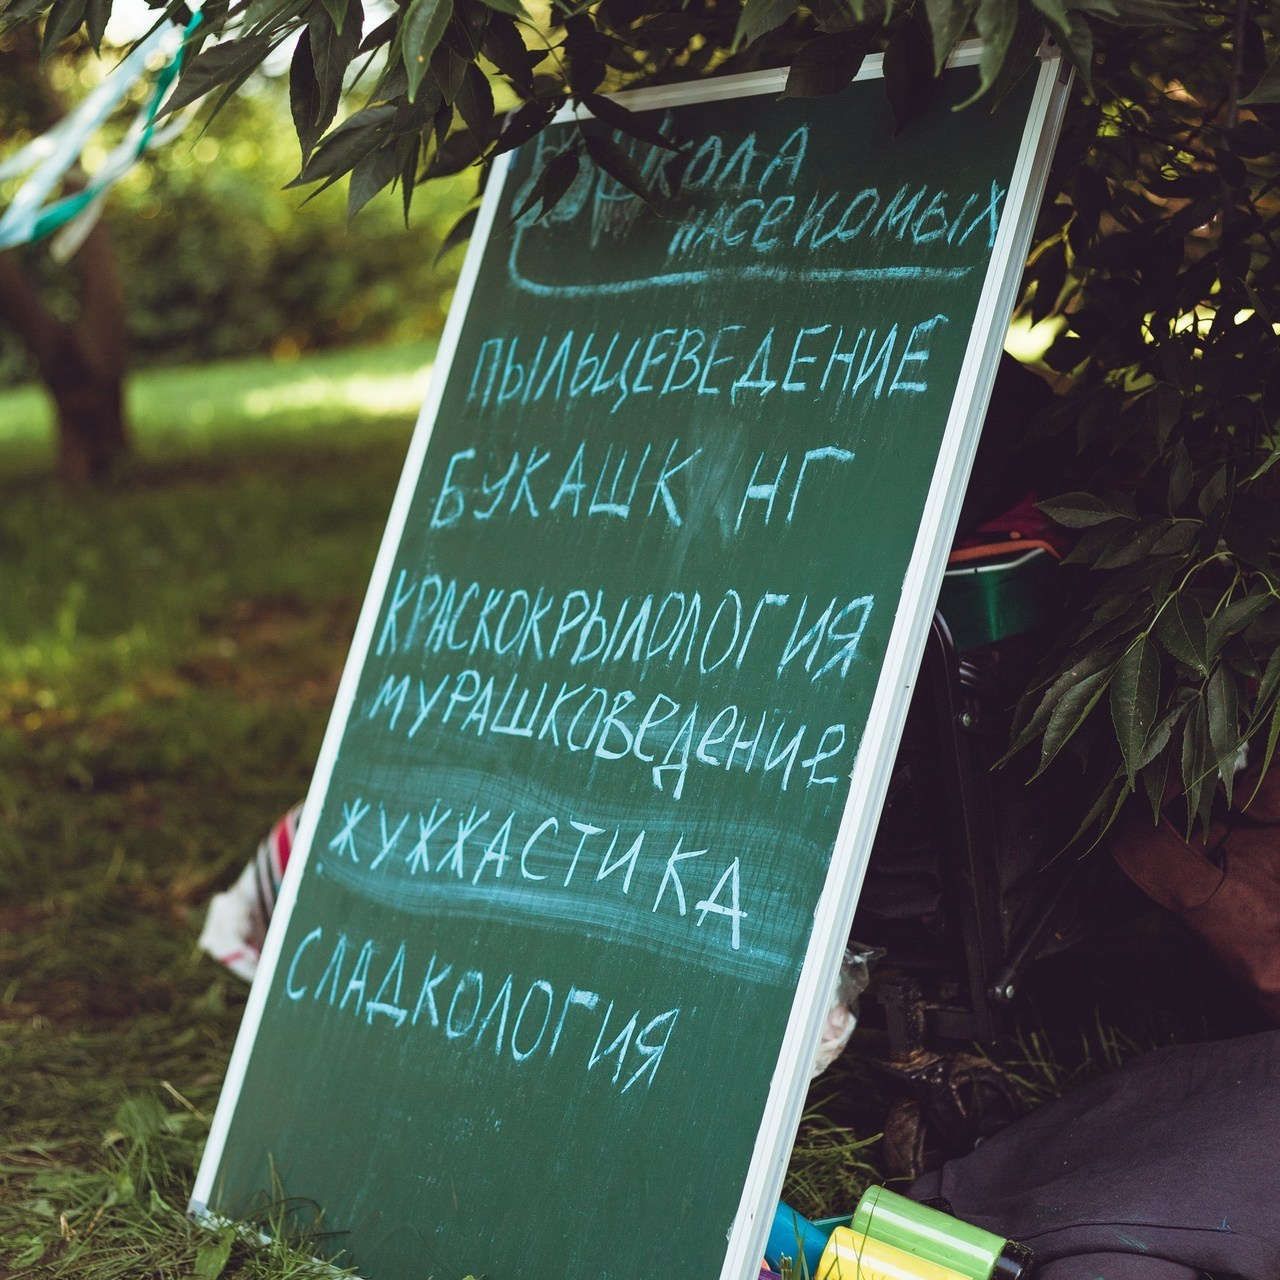 Школа
насекомых
ПЫЛЬЦЕВЕДЕНИЕ
БУКАШК НГ
КРАСКОКРЫЛОЛОГИЯ
МУРАШКОВЕДЕНИЕ
ЖУЖЖАСТИКА
СЛАДКОЛОГИЯ